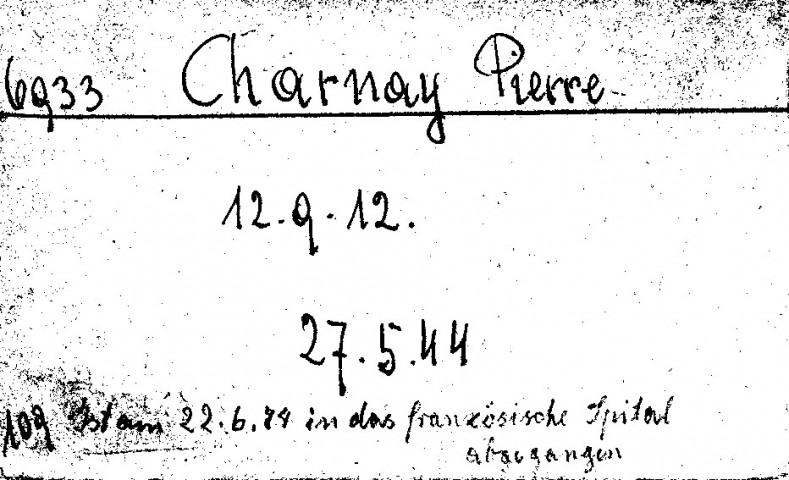 6933 Charnay Pierre
12.9.12.
27.5.44
109 Ist am 22.6.44 in das französische Spital
abgegangen